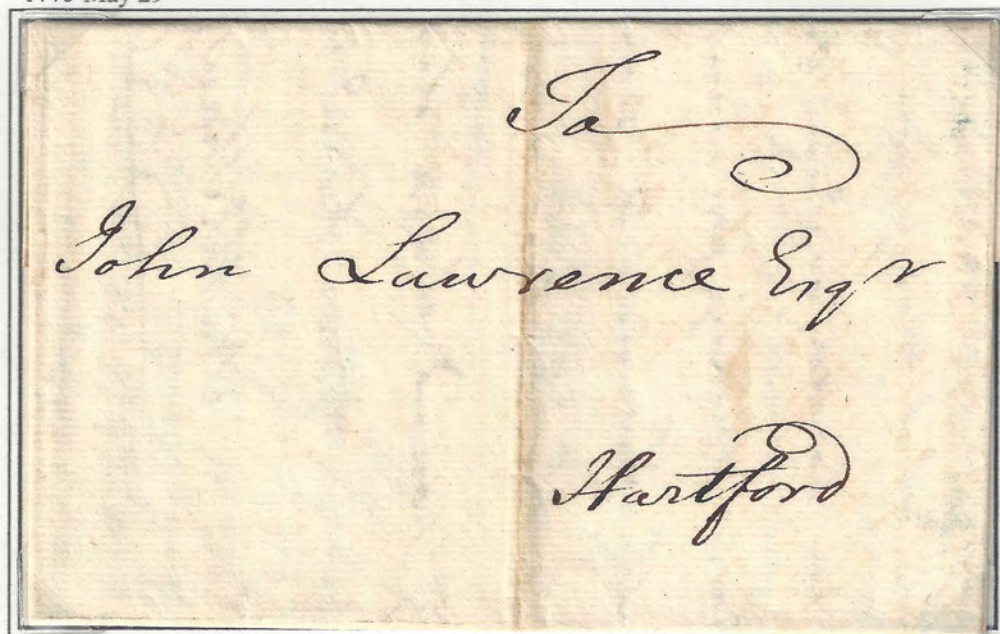 May 29
To
John Lawrence Esqr
Hartford